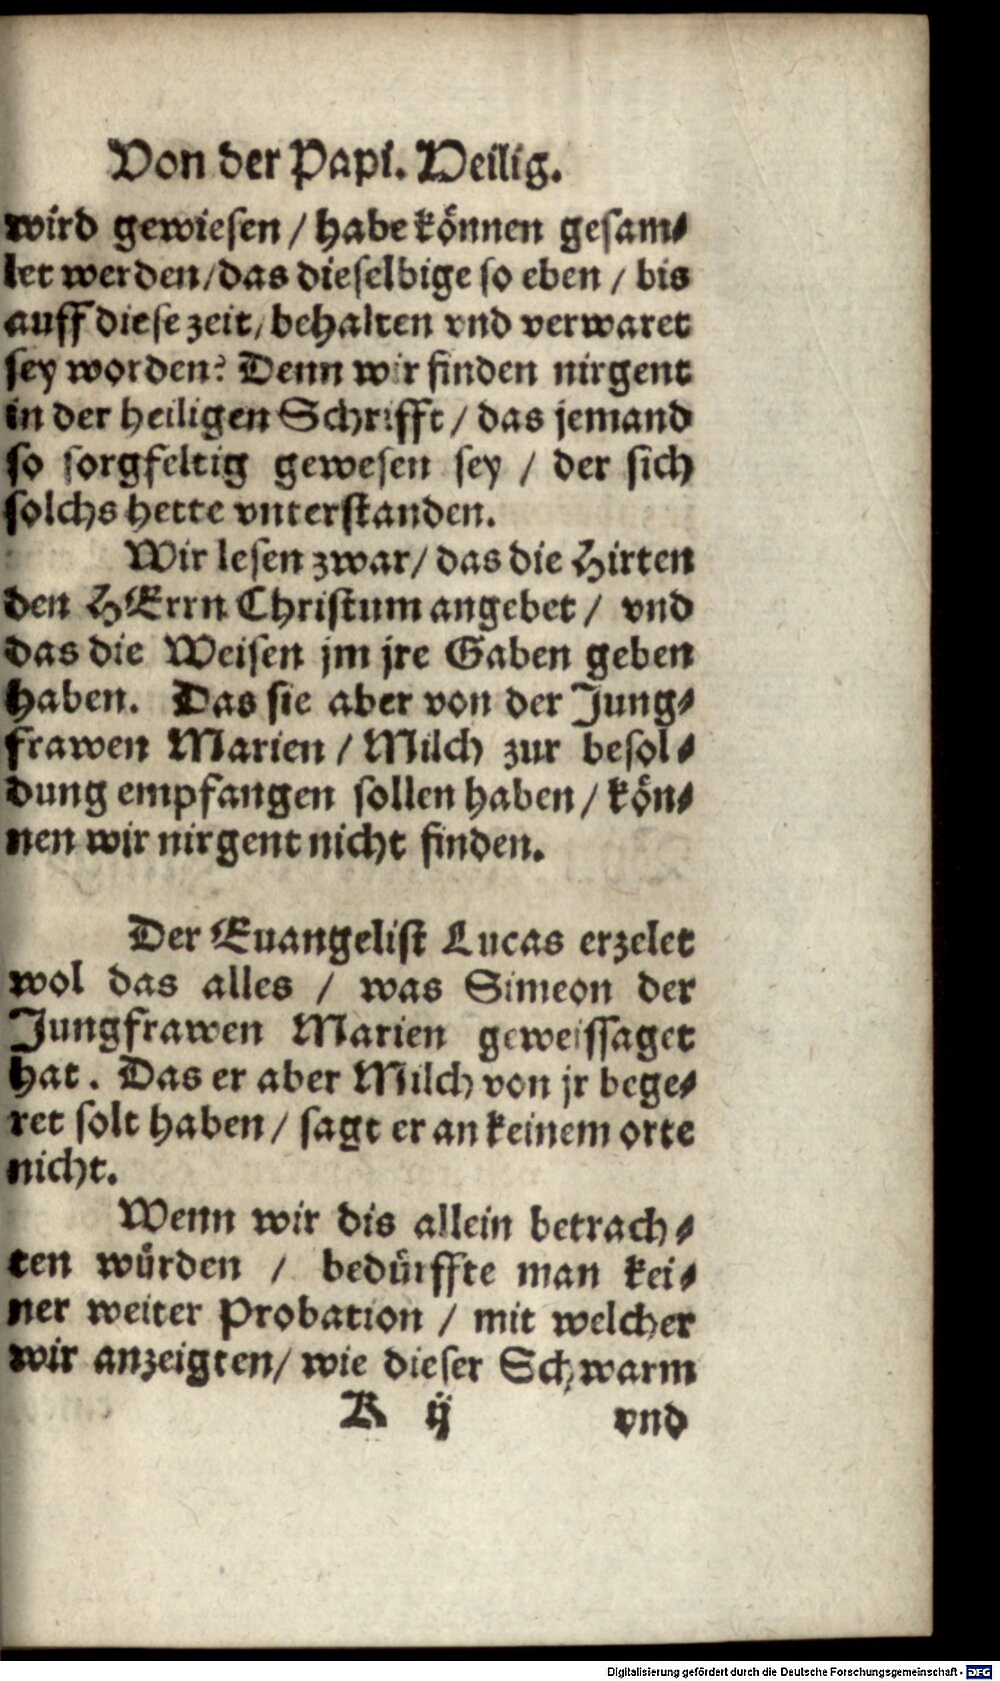 Von der Papi. Heilig.
wird gewiesen / habe können gesam⸗
let werden / das dieselbige so eben / bis
auff diese zeit / behalten vnd verwaret
sey worden? Denn wir finden nirgent
in der heiligen Schrifft / das jemand
so sorgfeltig gewesen sey / der sich
solchs hette vnterstanden.
Wir lesen zwar / das die Hirten
den HErrn Christum angebet / vnd
das die Weisen jm jre Gaben geben
haben. Das sie aber von der Jung⸗
frawen Marien / Milch zur besol⸗
dung empfangen sollen haben / kön⸗
nen wir nirgent nicht finden.
Der Euangelist Lucas erzelet
wol das alles / was Simeon der
Jungfrawen Marien geweissaget
hat. Das er aber Milch von jr bege⸗
ret solt haben / sagt er an keinem orte
nicht.
Wenn wir dis allein betrach⸗
ten würden / bedürffte man kei⸗
ner weiter Probation / mit welcher
wir anzeigten / wie dieser Schwarm
K ij vnd
Digitalisierung gefördert durch die Deutsche Forschungsgemeinschaft - DFG